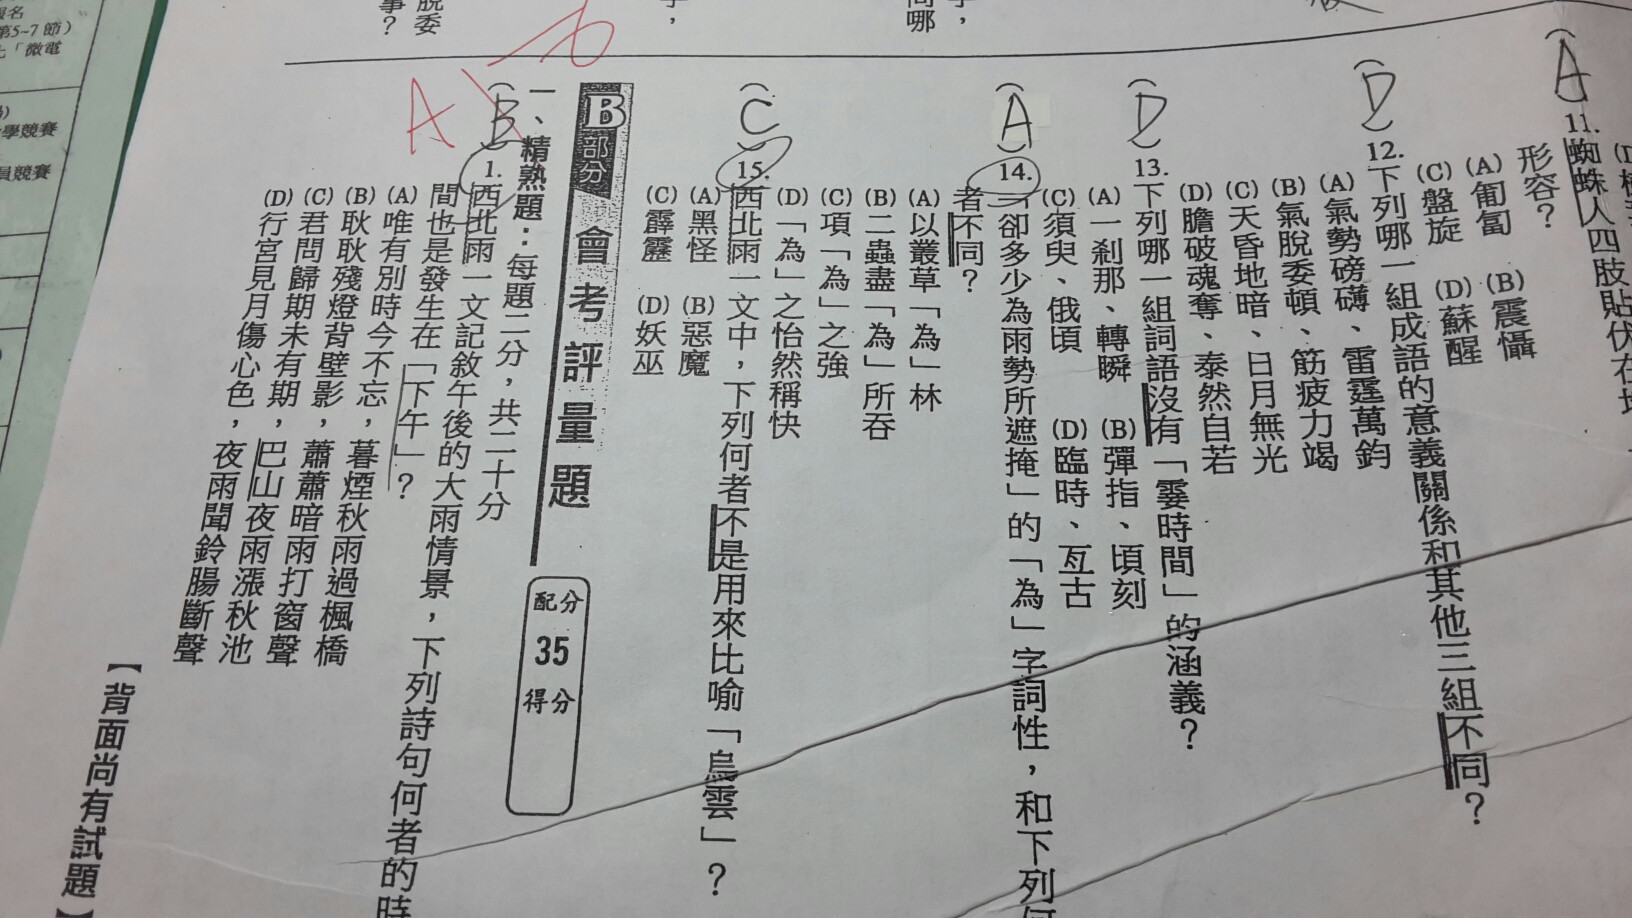 (A)
11.蜘蛛人四肢貼伏在地
形容？
(A)匍匐 (B)震懾
(C)盤旋 (D)蘇醒
(D)
12.下列哪一組成語的意義關係和其他三組不同？
(A)氣勢磅礡、雷霆萬鈞
(B)氣脫委頓、筋疲力竭
(C)天昏地暗、日月無光
(D)膽破魂奪、泰然自若
(D)
13.下列哪一組詞語沒有「霎時間」的涵義？
(A)一剎那、轉瞬 (B)彈指、頃刻
(C)須臾、俄頃 (D)臨時、亙古
(A)
14.「卻多少為雨勢所遮掩」的「為」字詞性，和下列何
者不同？
(A)以叢草「為」林
(B)二蟲盡「為」所吞
(C)項「為」之強
(D)「為」之怡然稱快
(C)
15.西北雨一文中，下列何者不是用來比喻「烏雲」？
(A)黑怪 (B)惡魔
(C)霹靂 (D)妖巫
B部分 會考評量題
配分
35
得分
一、精熟題：每題二分，共二十分
(B)
A
1.西北雨一文記敘午後的大雨情景，下列詩句何者的時
間也是發生在「下午」？
(A)唯有別時今不忘，暮煙秋雨過楓橋
(B)耿耿殘燈背壁影，蕭蕭暗雨打窗聲
(C)君問歸期未有期，巴山夜雨漲秋池
(D)行宮見月傷心色，夜雨聞鈴腸斷聲
【背面尚有試題】
脫委
事？
間哪
報名
第5~7 節)
「微電
學競賽
員競賽